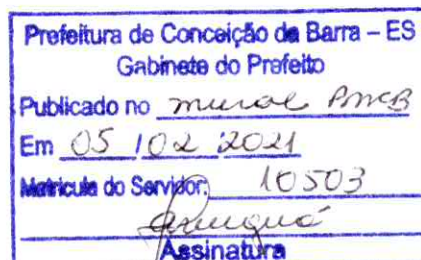 Prefeitura de Conceição da Barra – ES
Gabinete do Prefeito
Publicado no mural PMCB
Em 05 / 02 / 2021
Matrícula do Servidor: 10503
Assinatura